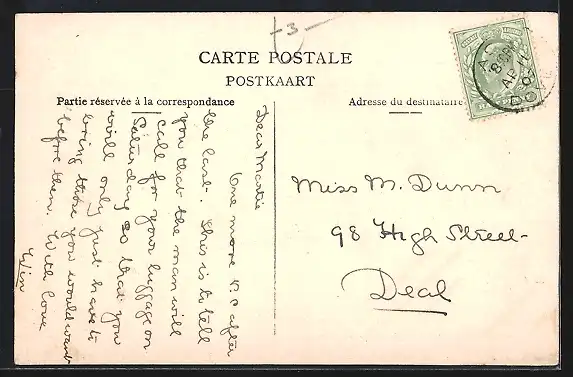 -3-
CARTE POSTALE
POSTKAART
Partie réservée à la correspondance
Adresse du destinataire
Dear Martie
One more P.C after
the last. This is to tell
you that the man will
call for your luggage on
Saturday so that you
will only just have to
bring those you would want
before then. With love
Win
Miss M. Dunn
98 High Street-
Deal
AP 11
DO